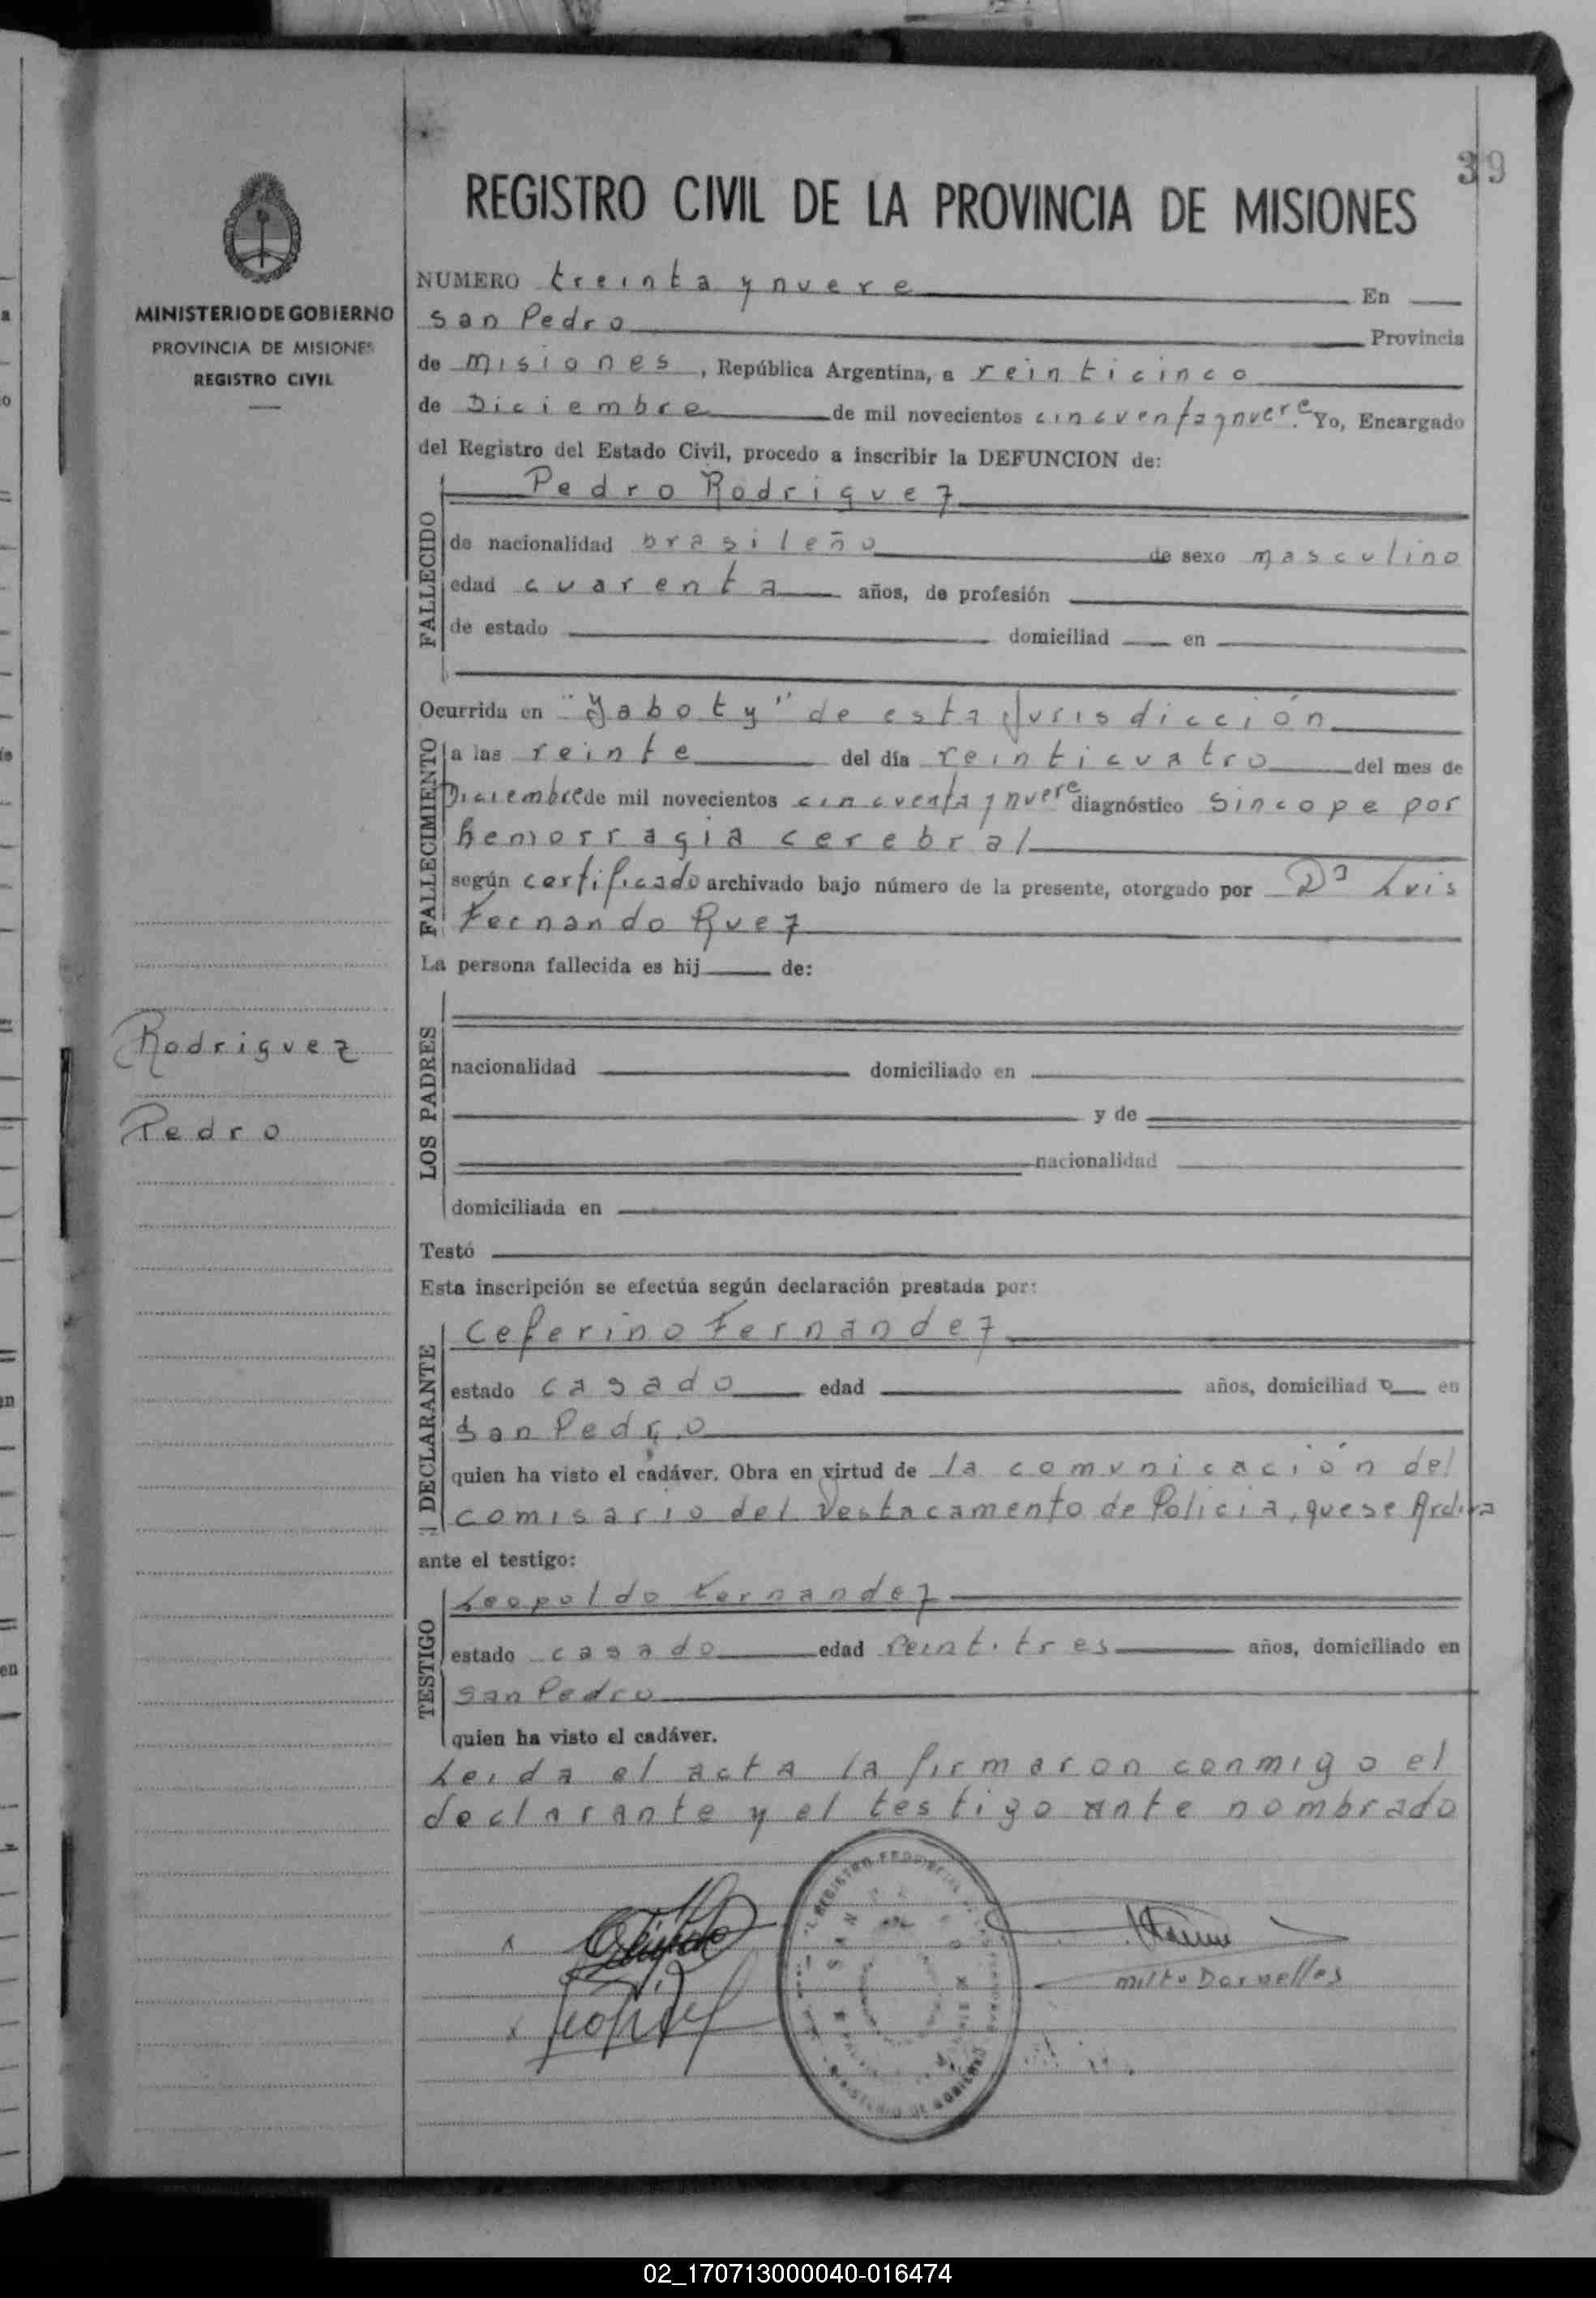 39
REGISTRO CIVIL DE LA PROVINCIA DE MISIONES
MINISTERIO DE GOBIERNO
PROVINCIA DE MISIONES
REGISTRO CIVIL
NUMERO treinta y nueve En
San Pedro Provincia
de misiones, República Argentina, a veinticinco
de Diciembre de mil novecientos cincuenta y nueve. Yo, Encargado
del Registro del Estado Civil, procedo a inscribir la DEFUNCION de:
FALLECIDO
Pedro Rodriguez
de nacionalidad brasileño de sexo masculino
edad cuarenta años, de profesión
de estado domiciliad en
Ocurrida en "Yaboty" de esta Jurisdicción
FALLECIMIENTO
a las veinte del día veinticuatro del mes de
Diciembre de mil novecientos cincuenta y nueve diagnóstico Sincope por
hemorragia cerebral
según certificado archivado bajo número de la presente, otorgado por Luis
Fernando Ruez
La persona fallecida es hij de:
Rodriguez
Pedro
LOS PADRES
nacionalidad domiciliado en
y de
nacionalidad
domiciliada en
Testó
Esta inscripción se efectúa según declaración prestada por:
DECLARANTE
Ceferino Fernandez
estado casado edad años, domiciliad o en
San Pedro
quien ha visto el cadáver. Obra en virtud de la comunicación del
comisario del Destacamento de Policia, que se
ante el testigo:
TESTIGO
Leopoldo Fernandez
estado casado edad veintitres años, domiciliado en
San Pedro
quien ha visto el cadáver.
Leida el acta la firmaron conmigo el
declarante y el testigo ante nombrado
MINISTERIO DE GOBIERNO
02_170713000040-016474